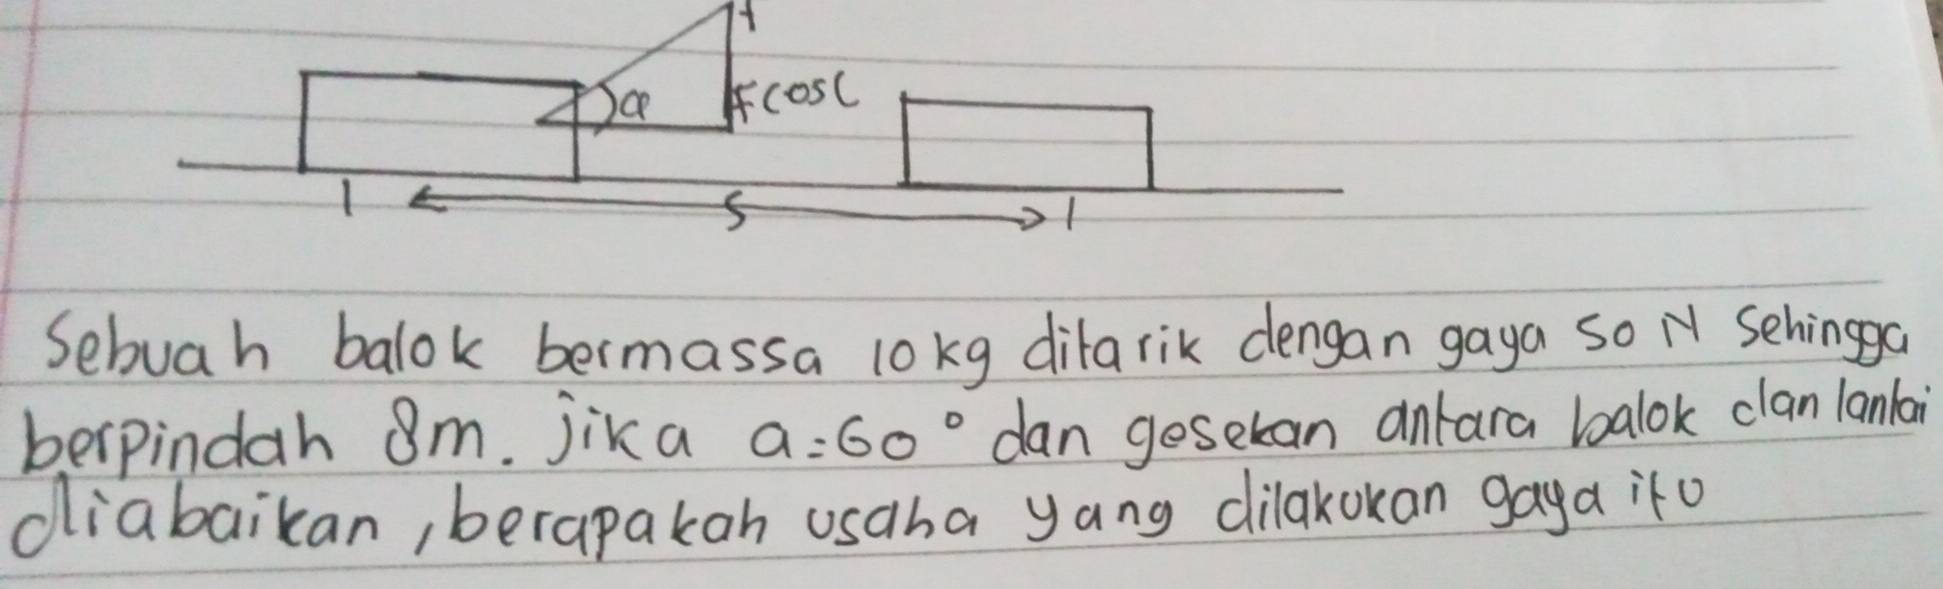 F
a
F cos (
1
S
1
Sebuah balok bermassa 10 kg ditarik dengan gaya 50 N sehingga
berpindah 8 m. jika a = 60° dan gesekan antara balok dan lantai
diabaikan, berapakah usaha yang dilakukan gaya itu